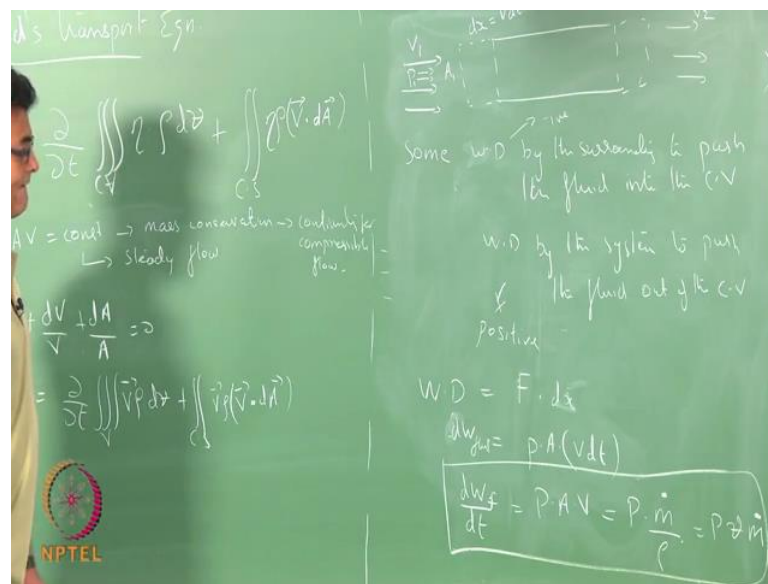 d's Transport Eqn.
∂/∂t ∭ η ρ d∀ + ∬ ηρ(V⃗·dA⃗)
C.V C.S
AV = const → mass conservation → continuity for compressible flow.
↳ steady flow
+ dV/V + dA/A = 0
= ∂/∂t ∭ V⃗ρ d∀ + ∬ V⃗ρ(V⃗·dA⃗)
V C.S
NPTEL
dx = Vdt
V₁
P₁ A₁
V₂
-ive
Some W.D by the surrounding to push
the fluid into the C.V
W.D by the system to push
the fluid out of the C.V
positive
W.D = F · dx
= p·A(vdt)
dW_f/dt = P·AV = P·ṁ/ρ = P∀ṁ